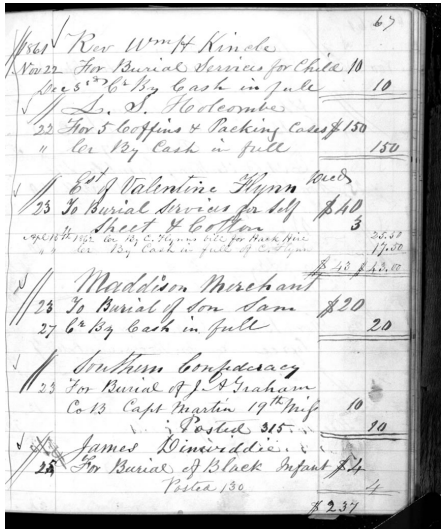 67
1861 Rev Wm H Kincle
Nov 22 For Burial Services for Child 10
Dec 3rd Cr By Cash in full 10
L. S. Holcombe
22 For 5 Coffins & Packing Cases $150
" Cr By Cash in full 150
Est of Valentine Flynn
23 To Burial Services for Self $40
Sheet & Cotton 3
Apl 12th 1862 Cr By C. Flynns bill for Hack Hire 25.50
" " Cr By Cash in full of C. Flynn 17.50
$43 $43.00
Maddison Merchant
23 To Burial of Son Sam $20
27 Cr By Cash in full 20
Southern Confederacy
23 For Burial of J. A Graham
Co B Capt Martin 19th Miss 10
Posted 315 10
James Dinwiddie
25 For Burial of Black Infant $4
Posted 130 4
$237